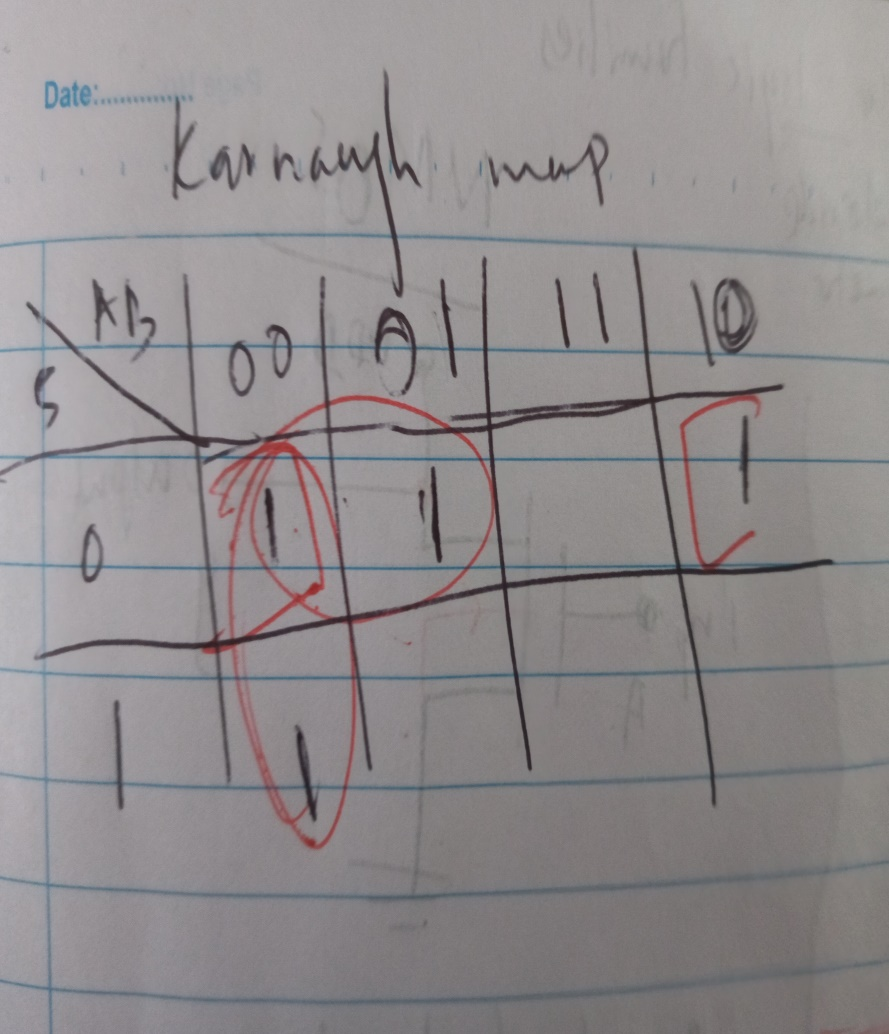 Date:..............
Karnaugh map
AB 00 01 11 10
S
0 1 1 1
1 1